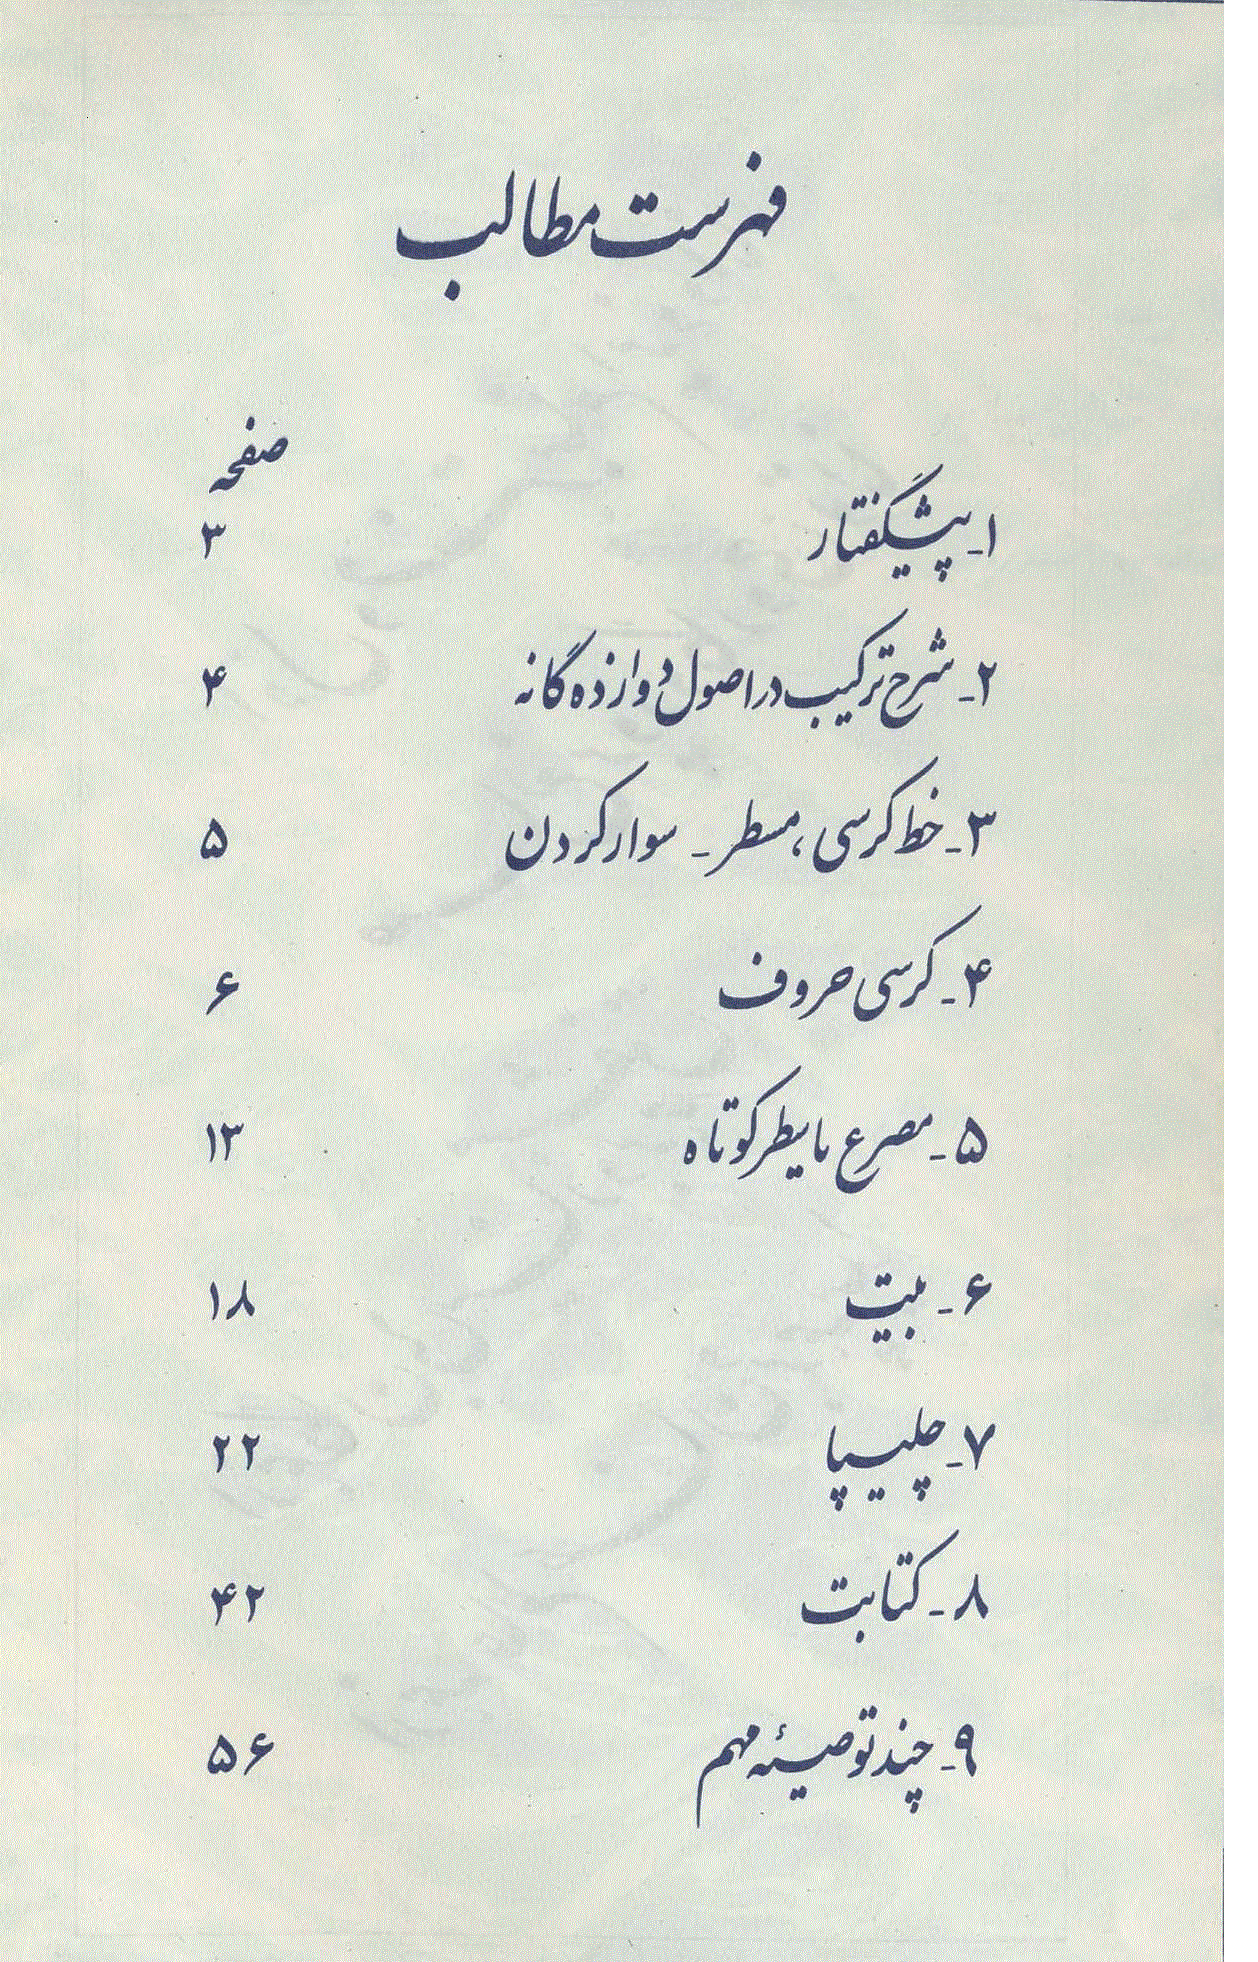 فهرست مطالب
صفحه
۱ـ پیشگفتار ۳
۲ـ شرح ترکیب در اصول دوازده گانه ۴
۳ـ خط کرسی، مسطر ـ سوار کردن ۵
۴ـ کرسی حروف ۶
۵ـ مصرع یا سطر کوتاه ۱۳
۶ـ بیت ۱۸
۷ـ چلیپا ۲۲
۸ـ کتابت ۴۲
۹ـ چند توصیهٔ مهم ۵۶